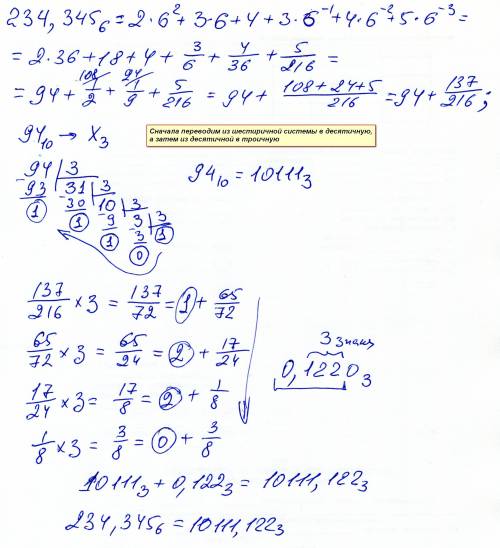 234,345₆ = 2·6² + 3·6 + 4 + 3·6⁻¹ + 4·6⁻² + 5·6⁻³ =
= 2·36 + 18 + 4 + 3/6 + 4/36 + 5/216 =
= 94 + 108/ 1/2 + 24/ 1/9 + 5/216 = 94 + (108+24+5)/216 = 94 + 137/216;
94₁₀ → X₃
Сначала переводим из шестиричной системы в десятичную,
а затем из десятичной в троичную
94 | 3
-93 31 | 3
1 -30 10 | 3
1 -9 3 | 3
1 -3 1
0
94₁₀ = 10111₃
137/216 × 3 = 137/72 = 1 + 65/72
65/72 × 3 = 65/24 = 2 + 17/24
17/24 × 3 = 17/8 = 2 + 1/8
1/8 × 3 = 3/8 = 0 + 3/8
3 знака
0,1220₃
10111₃ + 0,122₃ = 10111,122₃
234,345₆ = 10111,122₃